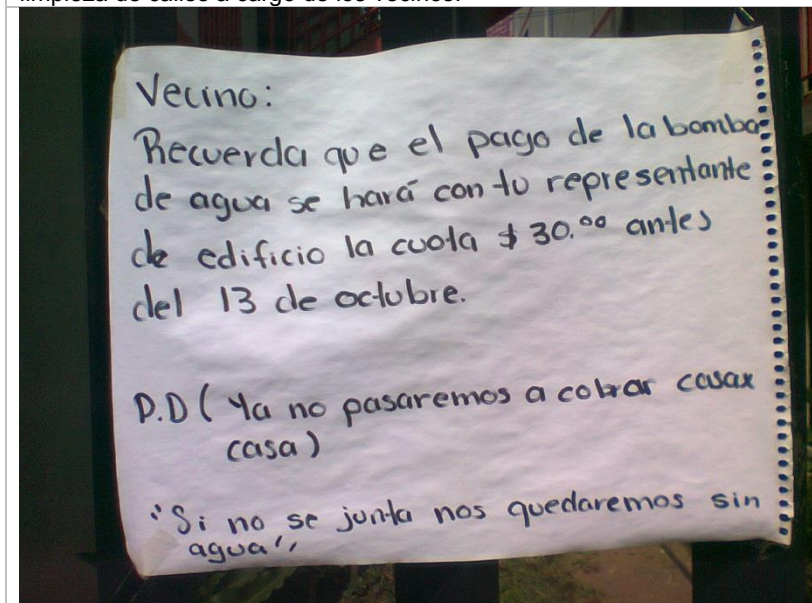 limpieza de calles a cargo de los vecinos.
Vecino:
Recuerda que el pago de la bomba
de agua se hará con tu representante
de edificio la cuota $ 30.⁰⁰ antes
del 13 de octubre.
P.D ( Ya no pasaremos a cobrar casa x
casa)
"Si no se junta nos quedaremos sin
agua"